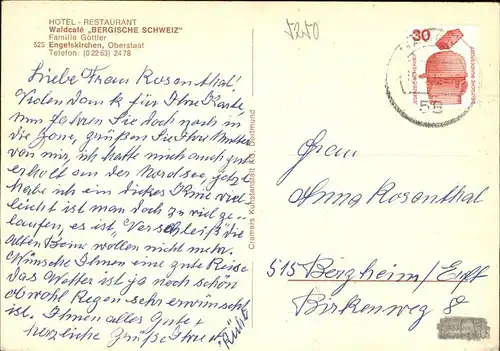 HOTEL - RESTAURANT
Waldcafé „BERGISCHE SCHWEIZ"
Familie Göttler
525 Engelskirchen, Oberstaat
Telefon: (0 22 63) 24 78
5250
Liebe Frau Rosenthal!
Vielen Dank für Ihre Karte,
nun fahren Sie doch noch in
die Zone, grüßen Sie Ihre Mutter
von mir, ich hatte mich auch gut
erholt an der Nordsee, jetzt
habe ich ein dickes Knie viel-
leicht ist man doch zu viel ge-
laufen, es ist Verschleiß die
alten Beine wollen nicht mehr.
Wünsche Ihnen eine gute Reise
das Wetter ist ja noch schön
obwohl Regen sehr erwünscht
ist. Ihnen alles Gute +
herzliche Grüße Ihre
Cramers Kunstanstalt KG. Dortmund
30
JEDERZEIT SICHERHEIT
DEUTSCHE BUNDESPOST
Frau
Anna Rosenthal
515 Bergheim/Erft
Birkenweg 8